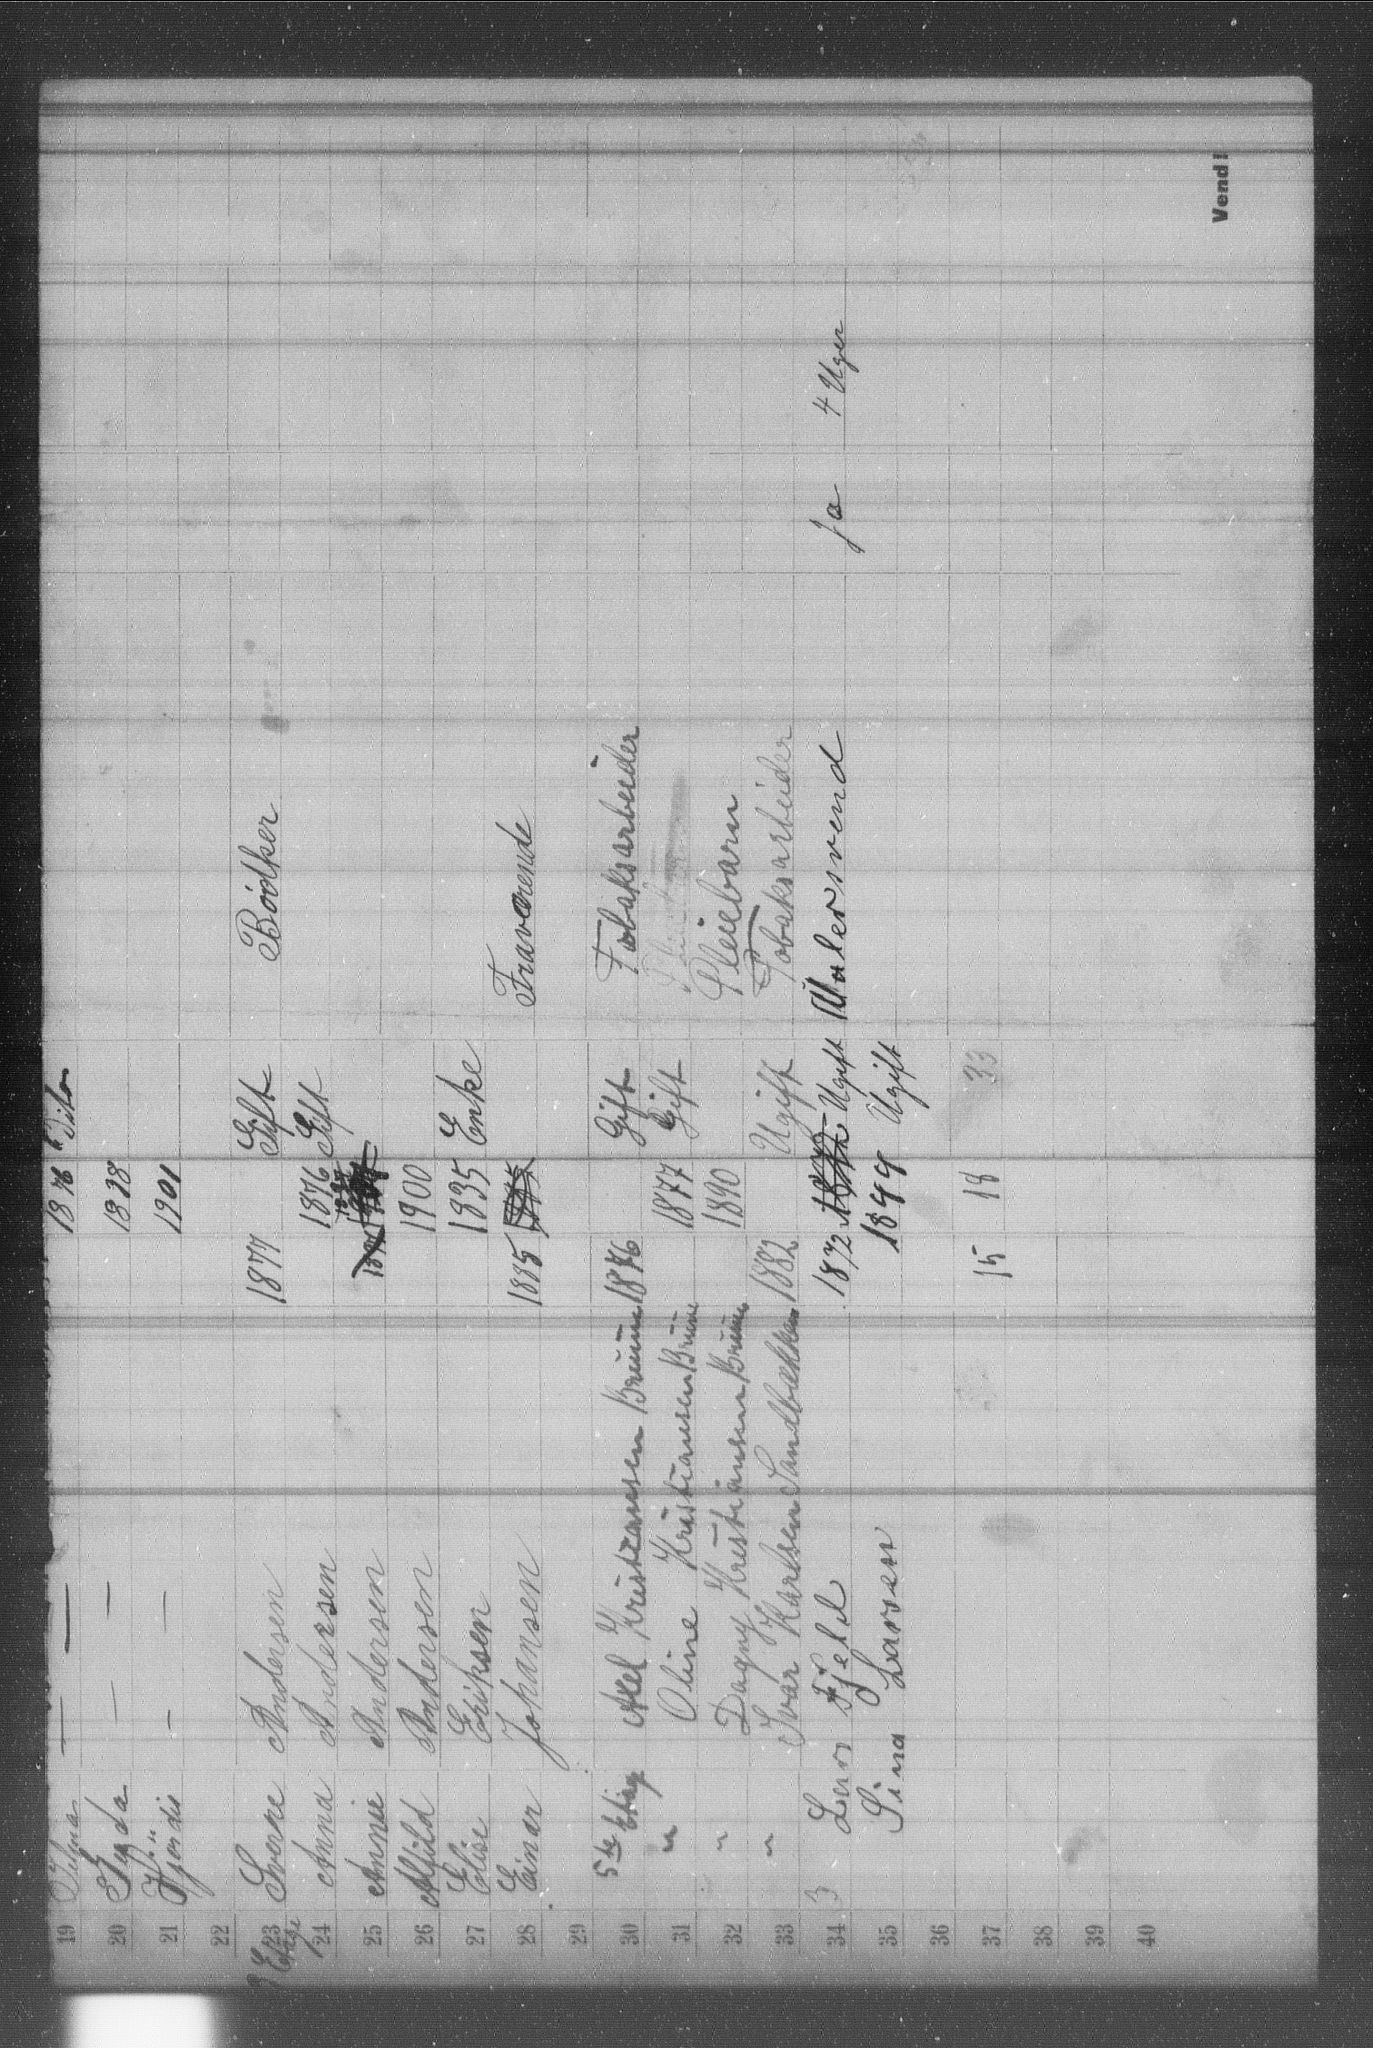 19 — — 1876 Dito
20 Gyda — — 1898
21 Hjördis — — 1901
22
3 Etage
23 Sverre Andersen 1877 Gift Bödker
24 Anna Andersen 1876 Gift
25 Annie Andersen
26 Alfild Andersen 1900
27 Elise Eriksen 1835 Enke
28 Einar Johansen 1885 Fraværende
29
30 5te Etage Axel Kristiansen Bruun 1876 Gift Tobaksarbeider
31 " Oline Kristiansen Bruun 1877 Gift
32 " Dagny Kristiansen Bruun 1890 Pleiebarn
33 " Ivar Karlsen Sandbækken 1882 Ugift Tobaksarbeider
34 3 Lars Fjeld 1872 Ugift Malersvend Ja 4 Uger
35 Sina Larsen 1844 Ugift
36
37 15 18 33
38
39
40
Vend!